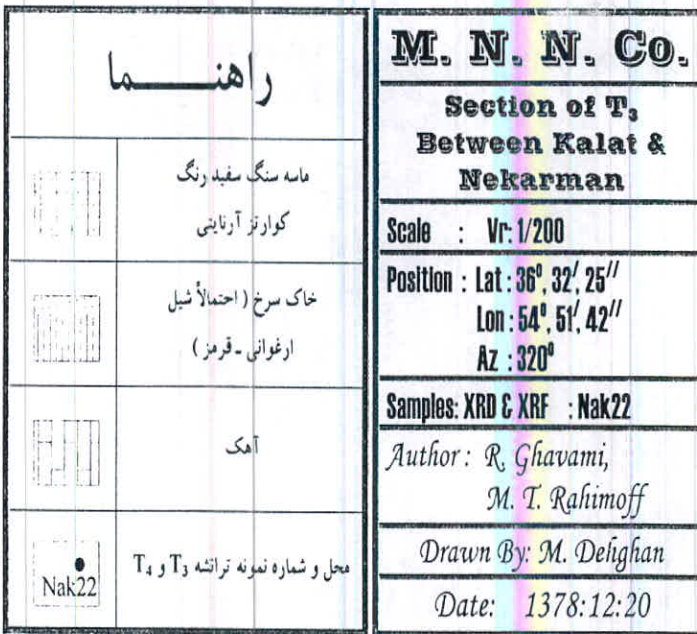 راهنمـــــا
ماسه سنگ سفید رنگ
کوارتز آرنایتی
خاک سرخ ( احتمالاً شیل
ارغوانی ـ قرمز )
آهک
Nak22
محل و شماره نمونه ترانشه T₃ و T₄
M. N. N. Co.
Section of T₃
Between Kalat &
Nekarman
Scale : Vr: 1/200
Position : Lat : 36⁰, 32′, 25″
Lon : 54⁰, 51′, 42″
Az : 320⁰
Samples: XRD & XRF : Nak22
Author : R. Ghavami,
M. T. Rahimoff
Drawn By: M. Dehghan
Date: 1378:12:20